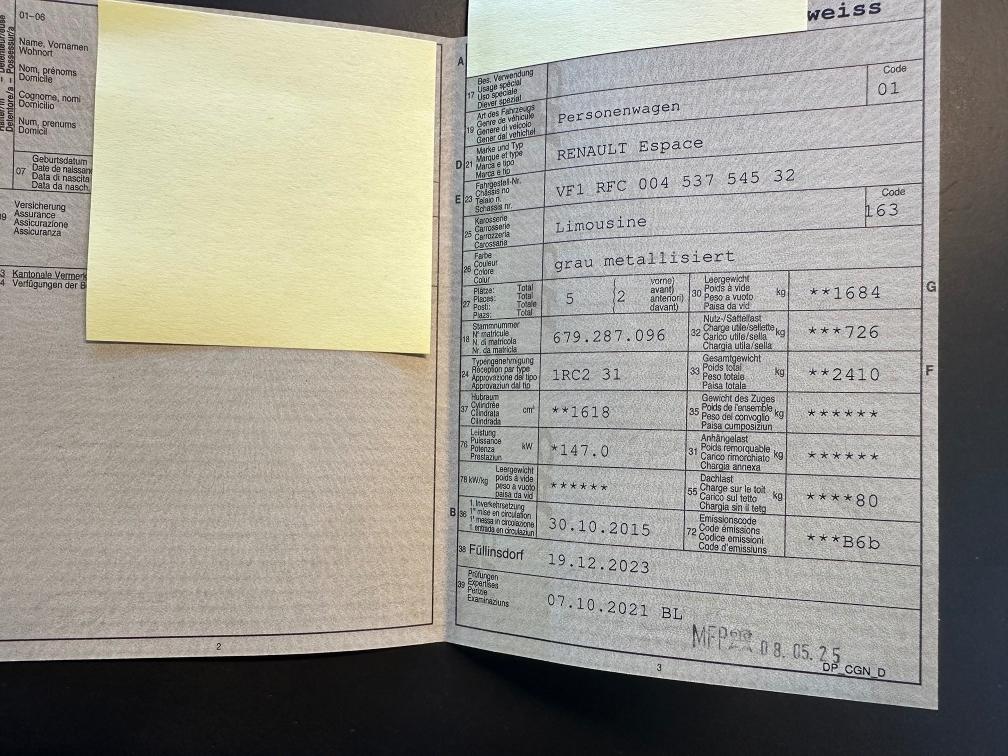 01-06
Name, Vornamen
Wohnort
Nom, prénoms
Domicile
Cognome, nomi
Domicilio
Num, prenums
Domicil
07
Geburtsdatum
Date de naissan
Data di nascita
Data da nasch.
Versicherung
Assurance
Assicurazione
Assicuranza
Kantonale Vermerk
Verfügungen der B
2
weiss
A
17 Bes. Verwendung
Usage spécial
Uso speciale
Diever spezial
19 Art des Fahrzeugs
Genre de véhicule
Genere di veicolo
Gener dal vehichel
Personenwagen
Code
01
D 21 Marke und Typ
Marque et type
Marca e tipo
Marca e tip
RENAULT Espace
E 23 Fahrgestell-Nr.
Châssis no
Telaio n.
Schassis nr.
VF1 RFC 004 537 545 32
25 Karosserie
Carrosserie
Carrozzeria
Carossaria
Limousine
Code
163
26 Farbe
Couleur
Colore
Colur
grau metallisiert
27 Plätze: Total
Places: Total
Posti: Totale
Plazs: Total
5 (2
vorne)
avant)
anteriori)
davant)
30 Leergewicht
Poids à vide kg
Peso a vuoto
Paisa da vid
**1684
G
18 Stammnummer
N° matricule
N. di matricola
Nr. da matricla
679.287.096
32 Nutz-/Sattellast
Charge utile/sellette kg
Carico utile/sella
Chargia utila/sella
***726
24 Typengenehmigung
Réception par type
Approvazione del tipo
Approvaziun dal tip
1RC2 31
33 Gesamtgewicht
Poids total kg
Peso totale
Paisa totala
**2410
F
37 Hubraum
Cylindrée cm³
Cilindrata
Cilindrada
**1618
35 Gewicht des Zuges
Poids de l'ensemble kg
Peso del convoglio
Paisa cumposiziun
******
76 Leistung
Puissance kW
Potenza
Prestaziun
*147.0
31 Anhängelast
Poids remorquable kg
Carico rimorchiato
Chargia annexa
******
78 kW/kg
Leergewicht
poids à vide
peso a vuoto
paisa da vid
******
55 Dachlast
Charge sur le toit kg
Carico sul tetto
Chargia sin il tetg
****80
B 36 1. Inverkehrsetzung
1re mise en circulation
1a messa in circolazione
1. entrada en circulaziun
30.10.2015
72 Emissionscode
Code émissions
Codice emissioni
Code d'emissiuns
***B6b
38 Füllinsdorf
19.12.2023
39 Prüfungen
Expertises
Perizie
Examinaziuns
07.10.2021 BL
08.05.25
3
DP_CGN_D